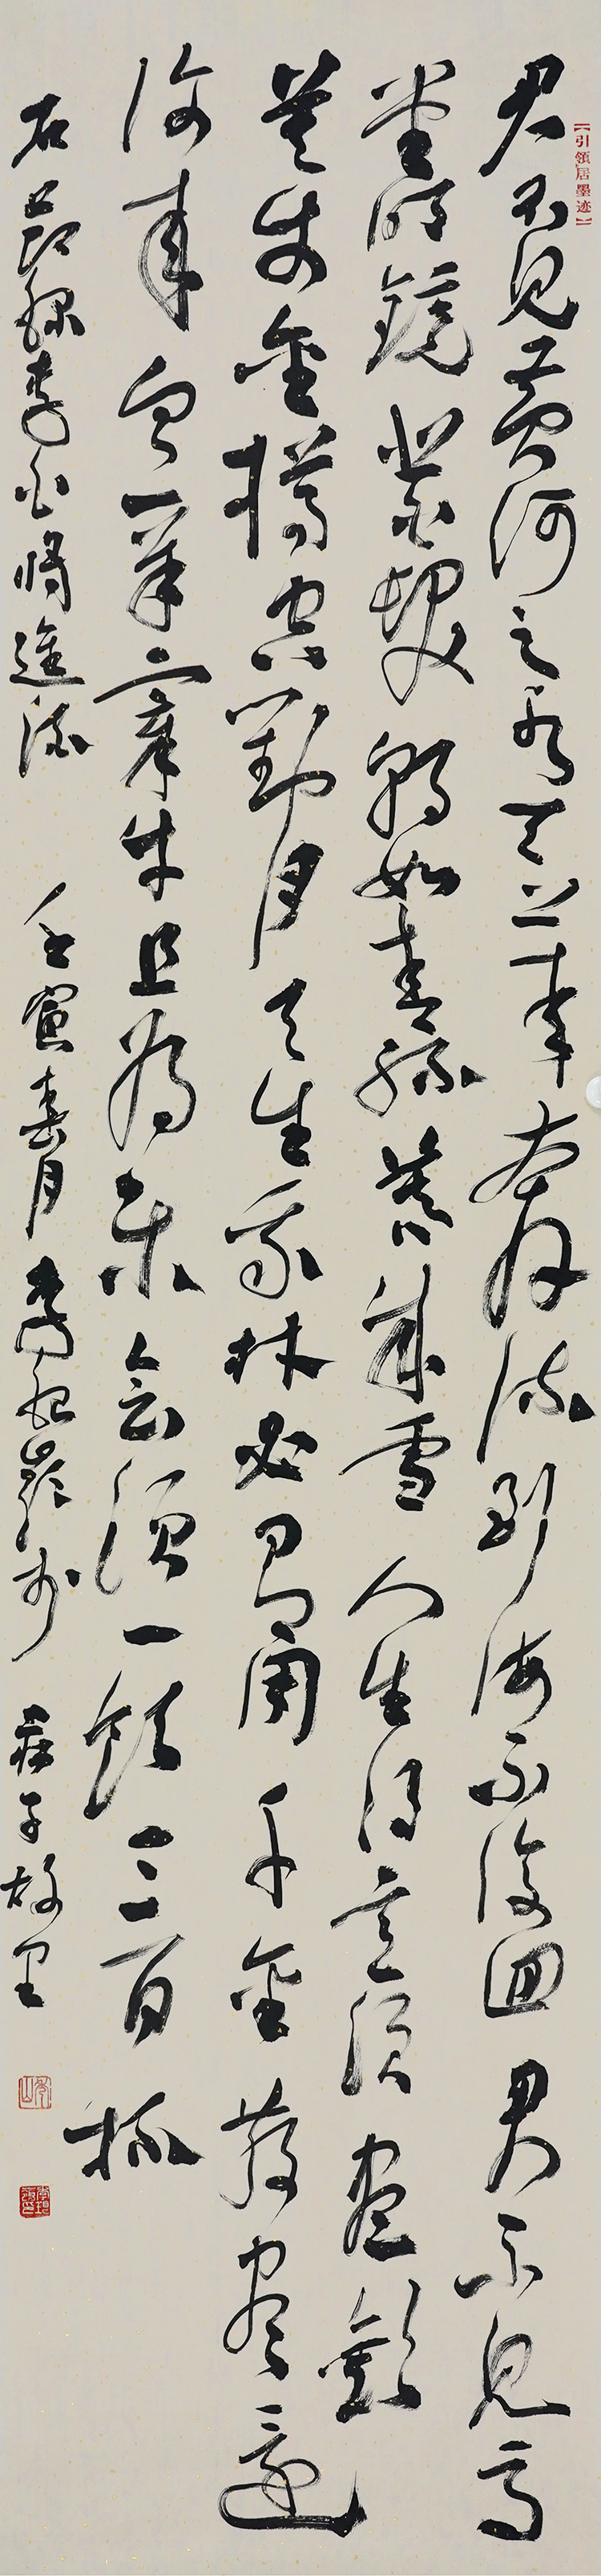 【引領居墨迹】
君不見黃河之水天上來奔流到海不復回君不見高
堂明鏡悲白髮朝如青絲暮成雪人生得意須盡歡
莫使金樽空對月天生我材必有用千金散盡還
復來烹羊宰牛且為樂會須一飲三百杯
右節錄李白將進酒 壬寅春月 李嶺書 莊子故里